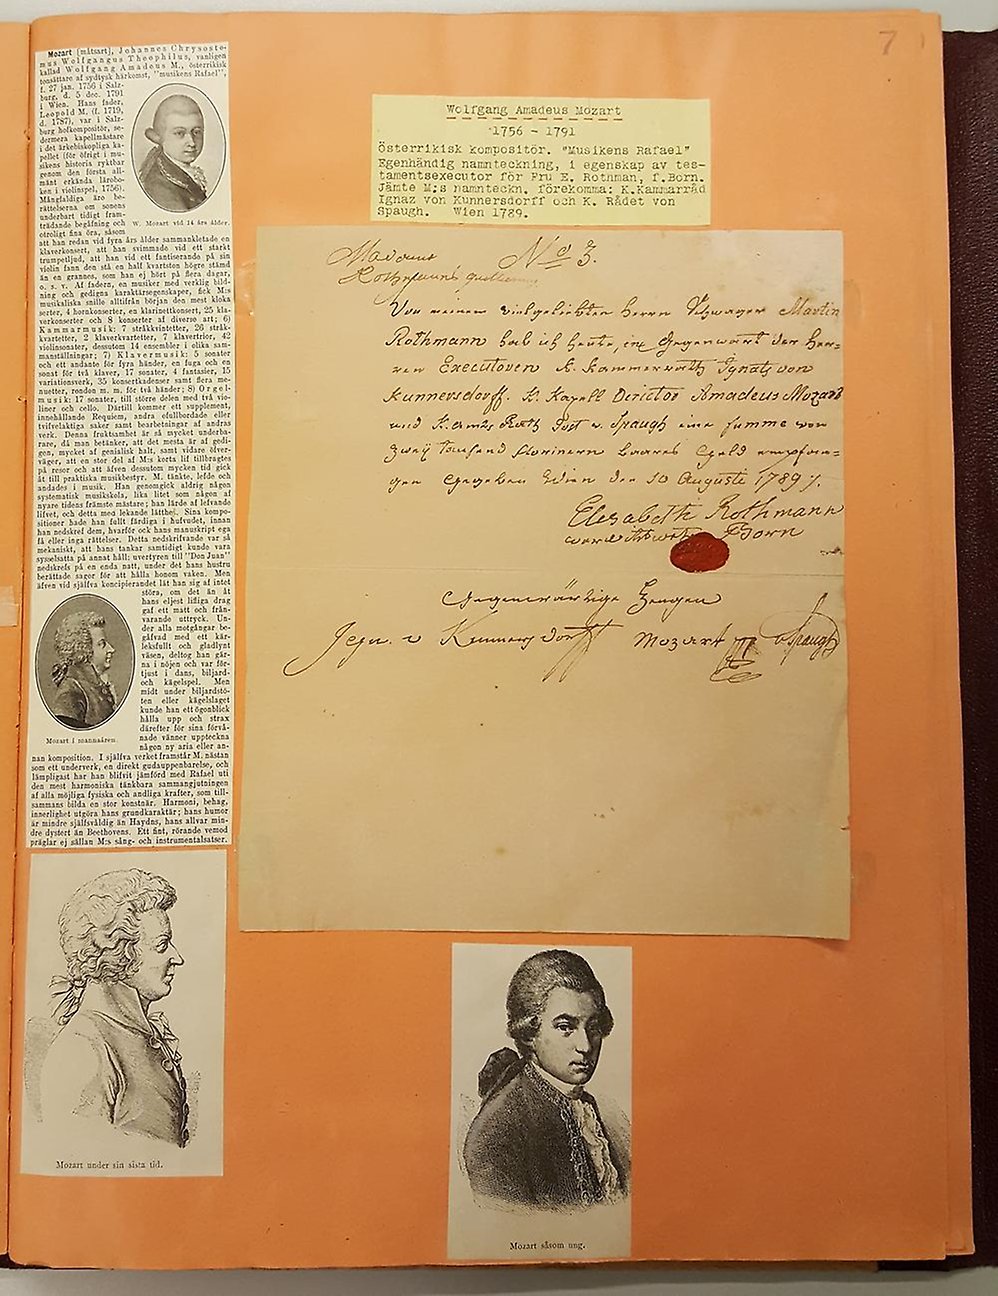 7
Mozart [måtsart], Johannes Chrysosto-
mus Wolfgangus Theophilus, vanligen
kallad Wolfgang Amadeus M., österrikisk
tonsättare af sydtysk härkomst, "musikens Rafael",
f. 27 jan. 1756 i Salz-
burg, d. 5 dec. 1791
i Wien. Hans fader,
Leopold M. (f. 1719,
d. 1787), var i Salz-
burg hofkompositör, se-
dermera kapellmästare
i det ärkebiskopliga ka-
pellet (för öfrigt i mu-
sikens historia ryktbar
genom den första all-
mänt erkända lärobo-
ken i violinspel, 1756).
Mångfaldiga äro be-
rättelserna om sonens
underbart tidigt fram-
trädande begåfning och
otroligt fina öra, såsom
W. Mozart vid 14 års ålder.
att han redan vid fyra års ålder sammankletade en
klaverkonsert, att han svimmade vid ett starkt
trumpetljud, att han vid ett fantiserande på sin
violin fann den stå en half kvartston högre stämd
än en grannes, som han ej hört på flera dagar,
o. s. v. Af fadern, en musiker med verklig bild-
ning och gedigna karaktärsegenskaper, fick M:s
musikaliska snille alltifrån början den mest kloka
serter, 4 hornkonserter, en klarinettkonsert, 25 kla-
verkonserter och 8 konserter af diverse art; 6)
Kammarmusik: 7 stråkkvintetter, 26 stråk-
kvartetter, 2 klaverkvartetter, 7 klavertrior, 42
violinsonater, dessutom 14 ensembler i olika sam-
manställningar; 7) Klavermusik: 5 sonater
och ett andante för fyra händer, en fuga och en
sonat för två klaver, 17 sonater, 4 fantasier, 15
variationsverk, 35 konsertkadenser samt flera me-
nuetter, rondon m. m. för två händer; 8) Orgel-
musik: 17 sonater, till större delen med två vio-
liner och cello. Därtill kommer ett supplement,
innehållande Requiem, andra ofullbordade eller
tvifvelaktiga saker samt bearbetningar af andras
verk. Denna fruktsamhet är så mycket underba-
rare, då man betänker, att det mesta är af gedi-
gen, mycket af genialisk halt, samt vidare öfver-
väger, att en stor del af M:s korta lif tillbragtes
på resor och att äfven dessutom mycken tid gick
åt till praktiska musikbestyr. M. tänkte, lefde och
andades i musik. Han genomgick aldrig någon
systematisk musikskola, lika litet som någon af
nyare tidens främste mästare; han lärde af lefvande
lifvet, och detta med lekande lätthet. Sina kompo-
sitioner hade han fullt färdiga i hufvudet, innan
han nedskref dem, hvarför ock hans manuskript ega
få eller inga rättelser. Detta nedskrifvande var så
mekaniskt, att hans tankar samtidigt kunde vara
sysselsatta på annat håll: uvertyren till "Don Juan"
nedskrefs på en enda natt, under det hans hustru
berättade sagor för att hålla honom vaken. Men
äfven vid själfva koncipierandet lät han sig af intet
störa, om det än åt
hans eljest lifliga drag
gaf ett matt och från-
varande uttryck. Un-
der alla motgångar be-
gåfvad med ett kär-
leksfullt och gladlynt
väsen, deltog han gär-
na i nöjen och var för-
tjust i dans, biljard-
och kägelspel. Men
midt under biljardstö-
ten eller kägelslaget
kunde han ett ögonblick
hålla upp och strax
därefter för sina förvå-
nade vänner uppteckna
någon ny aria eller an-
Mozart i mannaåren.
nan komposition. I själfva verket framstår M. nästan
som ett underverk, en direkt gudauppenbarelse, och
lämpligast har han blifvit jämförd med Rafael uti
den mest harmoniska tänkbara sammangjutningen
af alla möjliga fysiska och andliga krafter, som till-
sammans bilda en stor konstnär. Harmoni, behag,
innerlighet utgöra hans grundkaraktär; hans humor
är mindre själfsvåldig än Haydns, hans allvar min-
dre dystert än Beethovens. Ett fint, rörande vemod
präglar ej sällan M:s sång- och instrumentalsatser.
Wolfgang Amadeus Mozart
1756 - 1791
Österrikisk kompositör. "Musikens Rafael"
Egenhändig namnteckning, i egenskap av tes-
tamentsexecutor för Fru E. Rothman, f.Born.
Jämte M:s namnteckn. förekomma: K.Kammarråd
Ignaz von Kunnersdorff och K. Rådet von
Spaugh. Wien 1789.
Madame No 3.
Rothmanns
Von meinem vielgeliebten Herrn Schwager Martin
Rothmann hab ich heute, in Gegenwart der Her=
ren Executoren K. Kammerrath Ignatz von
Kunnersdorff. K. Kapell Director Amadeus Mozart
und K. Rath v. Spaugh eine summe von
Zweÿ tousend florinern baares Geld empfan=
gen Gegeben Wien den 10 Auguste 1789
Elesabeth Rothmann
Born
Gegenwärtige Zeugen
v Kunnersdorff Mozart v Spaugh
Mozart under sin sista tid.
Mozart såsom ung.